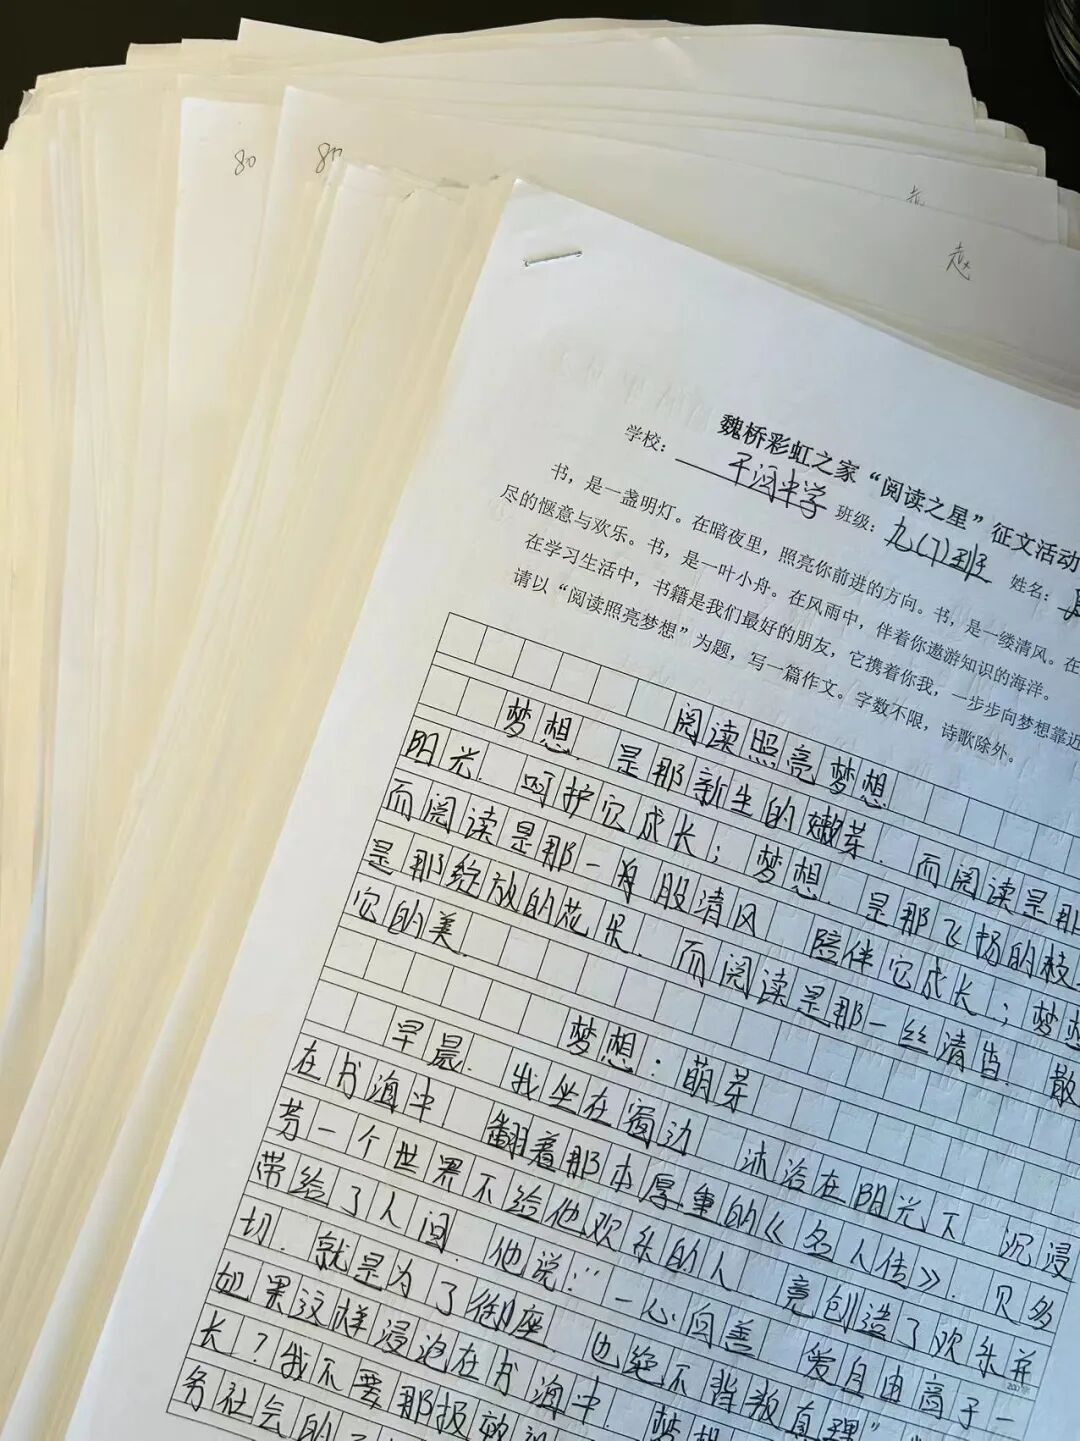 80
赵
魏桥彩虹之家“阅读之星”征文活动
学校： 干河中学 班级：九(7)班 姓名：
书，是一盏明灯。在暗夜里，照亮你前进的方向。书，是一缕清风。在
尽的惬意与欢乐。书，是一叶小舟。在风雨中，伴着你遨游知识的海洋。
在学习生活中，书籍是我们最好的朋友，它携着你我，一步步向梦想靠近
请以“阅读照亮梦想”为题，写一篇作文。字数不限，诗歌除外。
阅读照亮梦想
梦想，是那新生的嫩芽，而阅读是那
阳光，呵护它成长；梦想，是那飞扬的枝
而阅读是那一股清风，陪伴它成长；梦想
是那绽放的花朵，而阅读是那一丝清香，散
它的美
梦想：萌芽
早晨，我坐在窗边，沐浴在阳光下，沉浸
在书海中，翻着那本厚重的《名人传》，贝多
芬一个世界不给他欢乐的人，竟创造了欢乐并
带给了人间，他说：“一心向善，爱自由高于一
切，就是为了御座，也绝不背叛真理”
如果这样浸泡在书海中，梦想
长？我不要那
务社会的